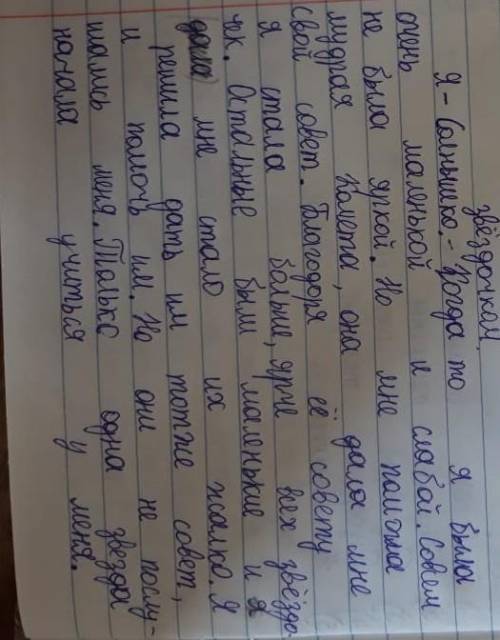 звёздочкой
Я - Солнышко. - Когда то я была
очень маленькой и слабой. Совсем
не была яркой. Но мне
мудрая Комета, она дала мне
свой совет. Благодоря её совету
я стала больше, ярче всех звёздо
чек. Остальные были маленькие и
мне стало их жалко. Я
решила дать им тотже совет,
и помочь им. Но они не послу-
шались меня. Только одна звезда
начала учиться у меня.